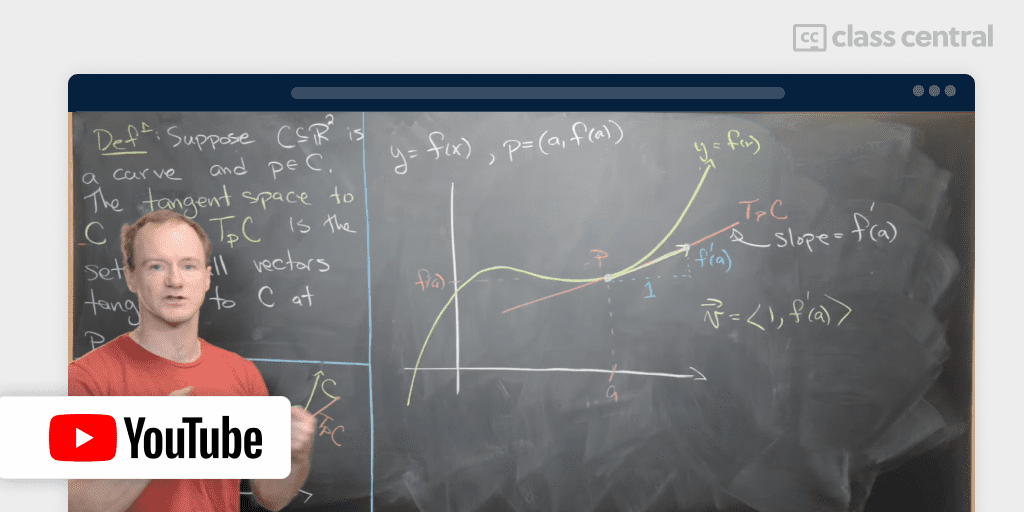 cc class central
Def: Suppose C⊆ℝ² is
a curve and p∈C.
The tangent space to
C TₚC is the
set ll vectors
tang to C at
P
C
TₚC
y=f(x), p=(a, f(a))
y=f(x)
TₚC
slope=f'(a)
P
f'(a)
f(a)
1
v⃗=⟨1, f'(a)⟩
a
YouTube